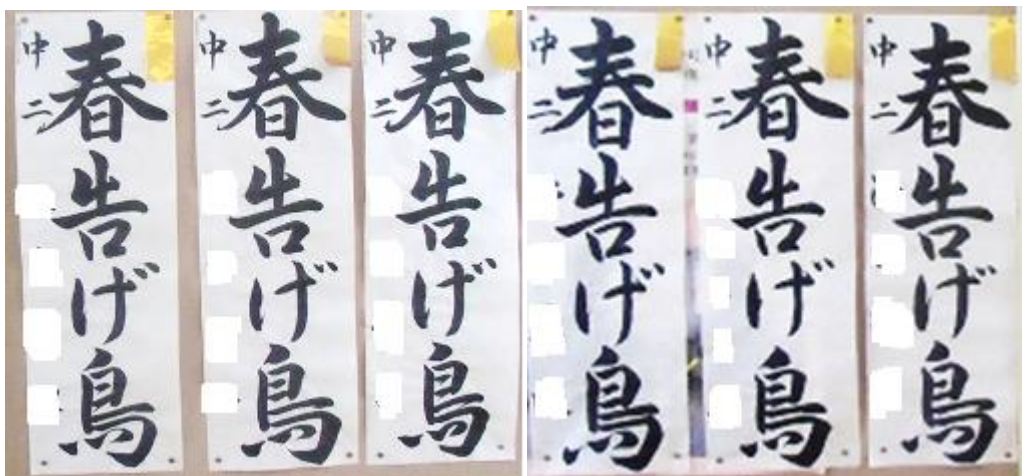 春告げ鳥
中二
春告げ鳥
中二
春告げ鳥
中二
春告げ鳥
中二
春告げ鳥
中二
春告げ鳥
中二